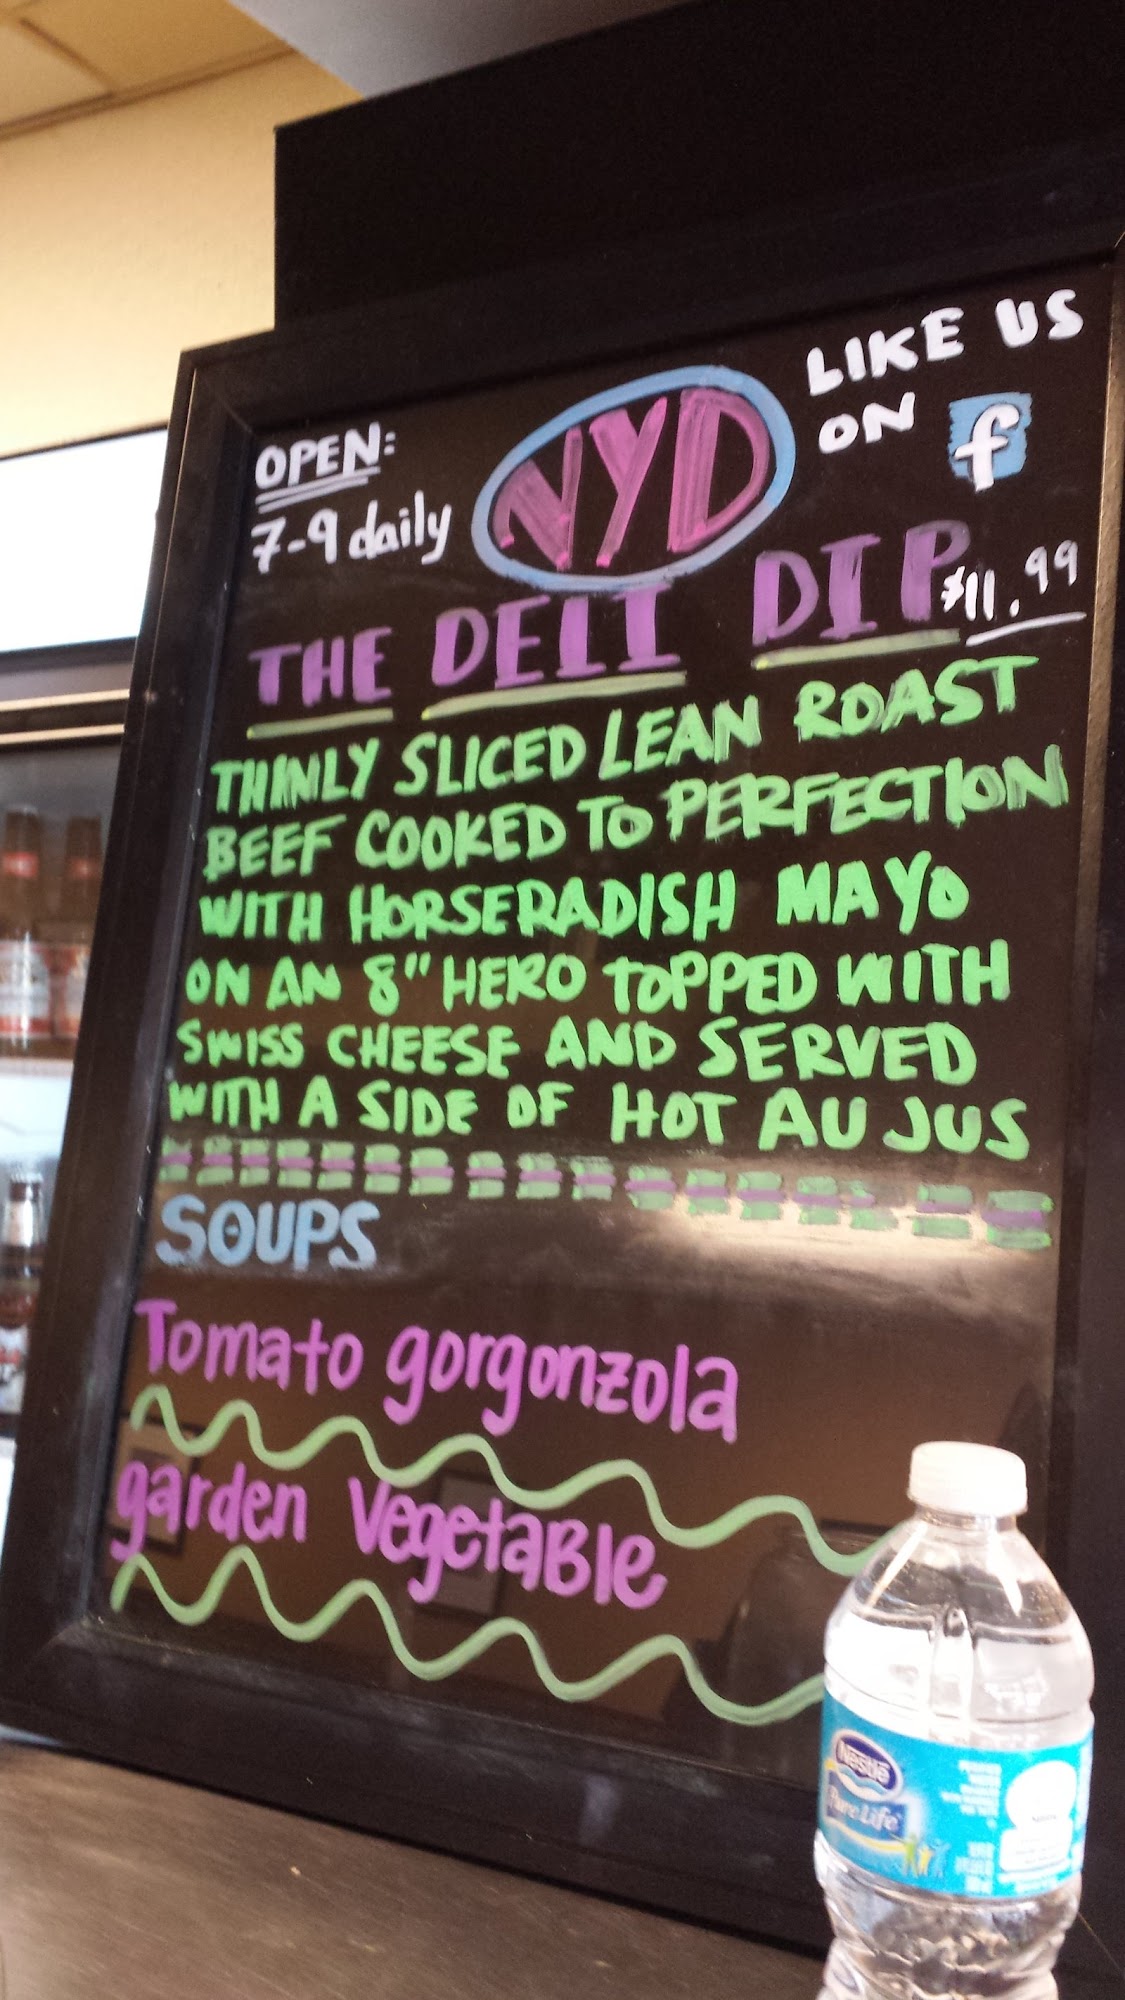 OPEN:
7-9 daily
NYD
LIKE US
ON f
THE DELI DIP $11.99
THINLY SLICED LEAN ROAST
BEEF COOKED TO PERFECTION
WITH HORSERADISH MAYO
ON AN 8" HERO TOPPED WITH
SWISS CHEESE AND SERVED
WITH A SIDE OF HOT AU JUS
SOUPS
Tomato gorgonzola
garden VegetaBle
Nestlé
Pure Life